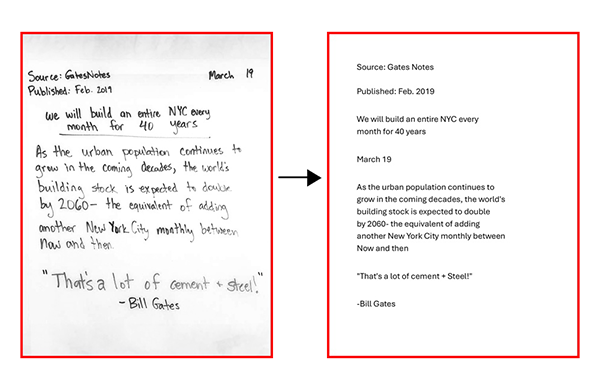 Source: GatesNotes
March 19
Published: Feb. 2019
we will build an entire NYC every
month for 40 years
As the urban population continues to
grow in the coming decades, the world's
building stock is expected to double
by 2060- the equivalent of adding
another New York City monthly between
Now and then
"That's a lot of cement + Steel!"
-Bill Gates
Source: Gates Notes
Published: Feb. 2019
We will build an entire NYC every
month for 40 years
March 19
As the urban population continues to
grow in the coming decades, the world's
building stock is expected to double
by 2060- the equivalent of adding
another New York City monthly between
Now and then
"That's a lot of cement + Steel!"
-Bill Gates